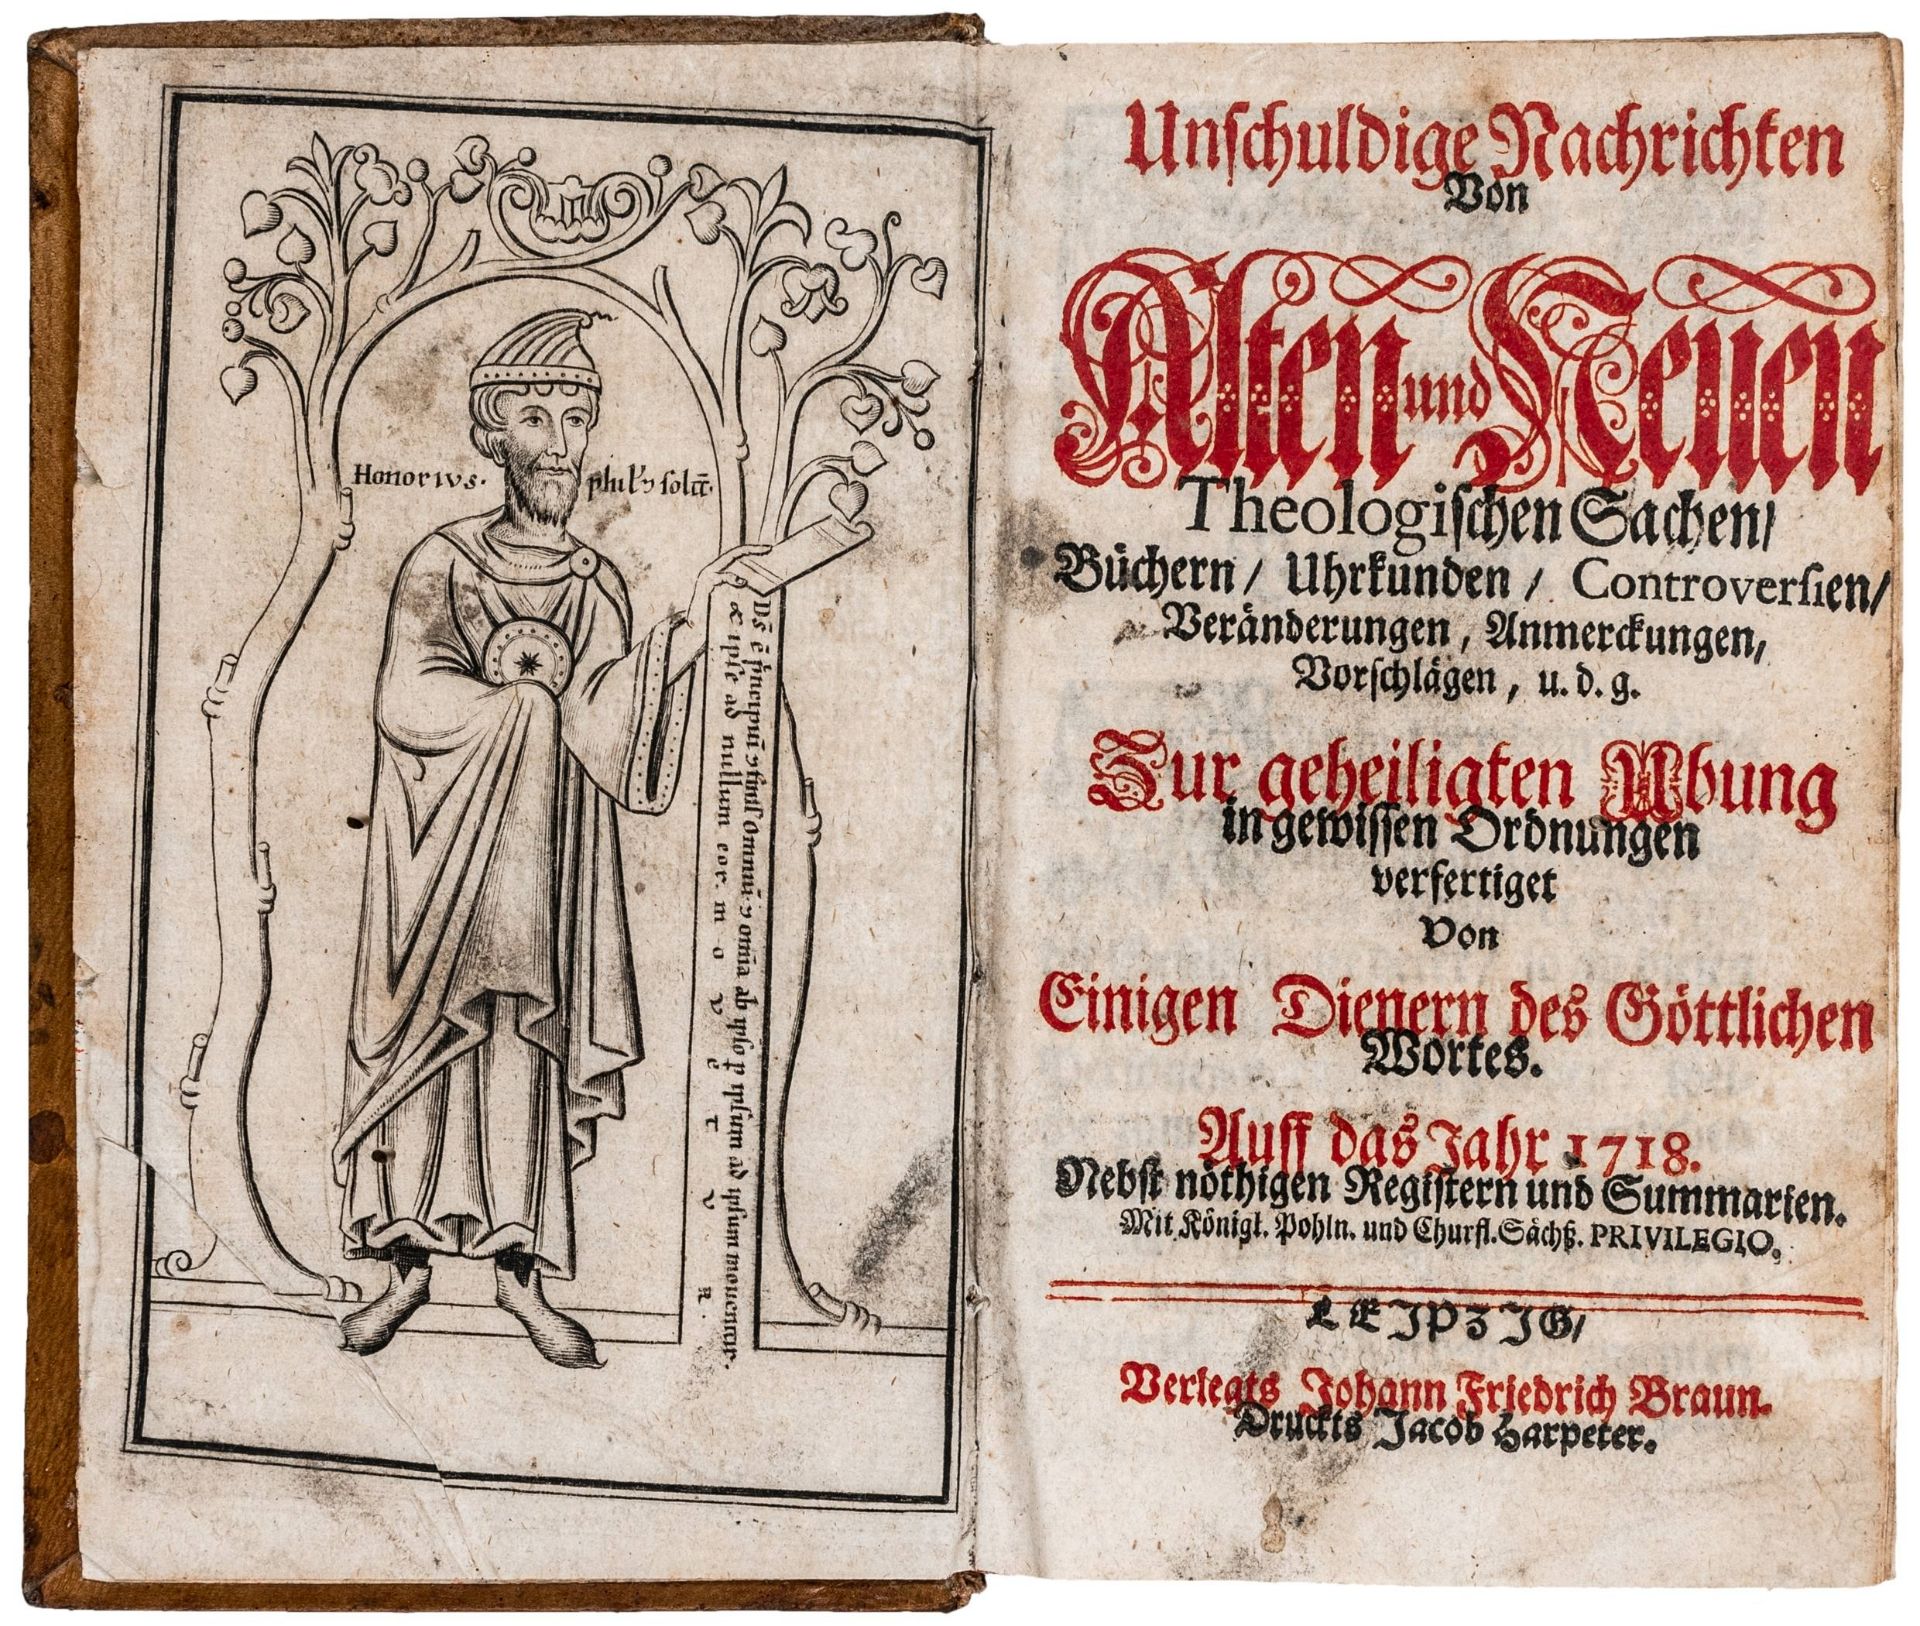 Honorivs.
D̅s̅ e̅ principiu̅ & finis omniu̅ & omnia ab ipso p ipsum ad ipsum mouentur.
& ipse ad nullum eor. M O V E T V R.
Unschuldige Nachrichten
Von
Alten und Neuen
Theologischen Sachen/
Büchern/ Uhrkunden/ Controversien/
Veränderungen, Anmerckungen,
Vorschlägen, u. d. g.
Zur geheiligten Ubung
in gewissen Ordnungen
verfertiget
Von
Einigen Dienern des Göttlichen
Wortes.
Auff das Jahr 1718.
Nebst nöthigen Registern und Summarien.
Mit Königl. Pohln. und Churfl. Sächß. PRIVILEGIO.
LEIPZIG/
Verlegts Johann Friedrich Braun.
Druckts Jacob Harpeter.